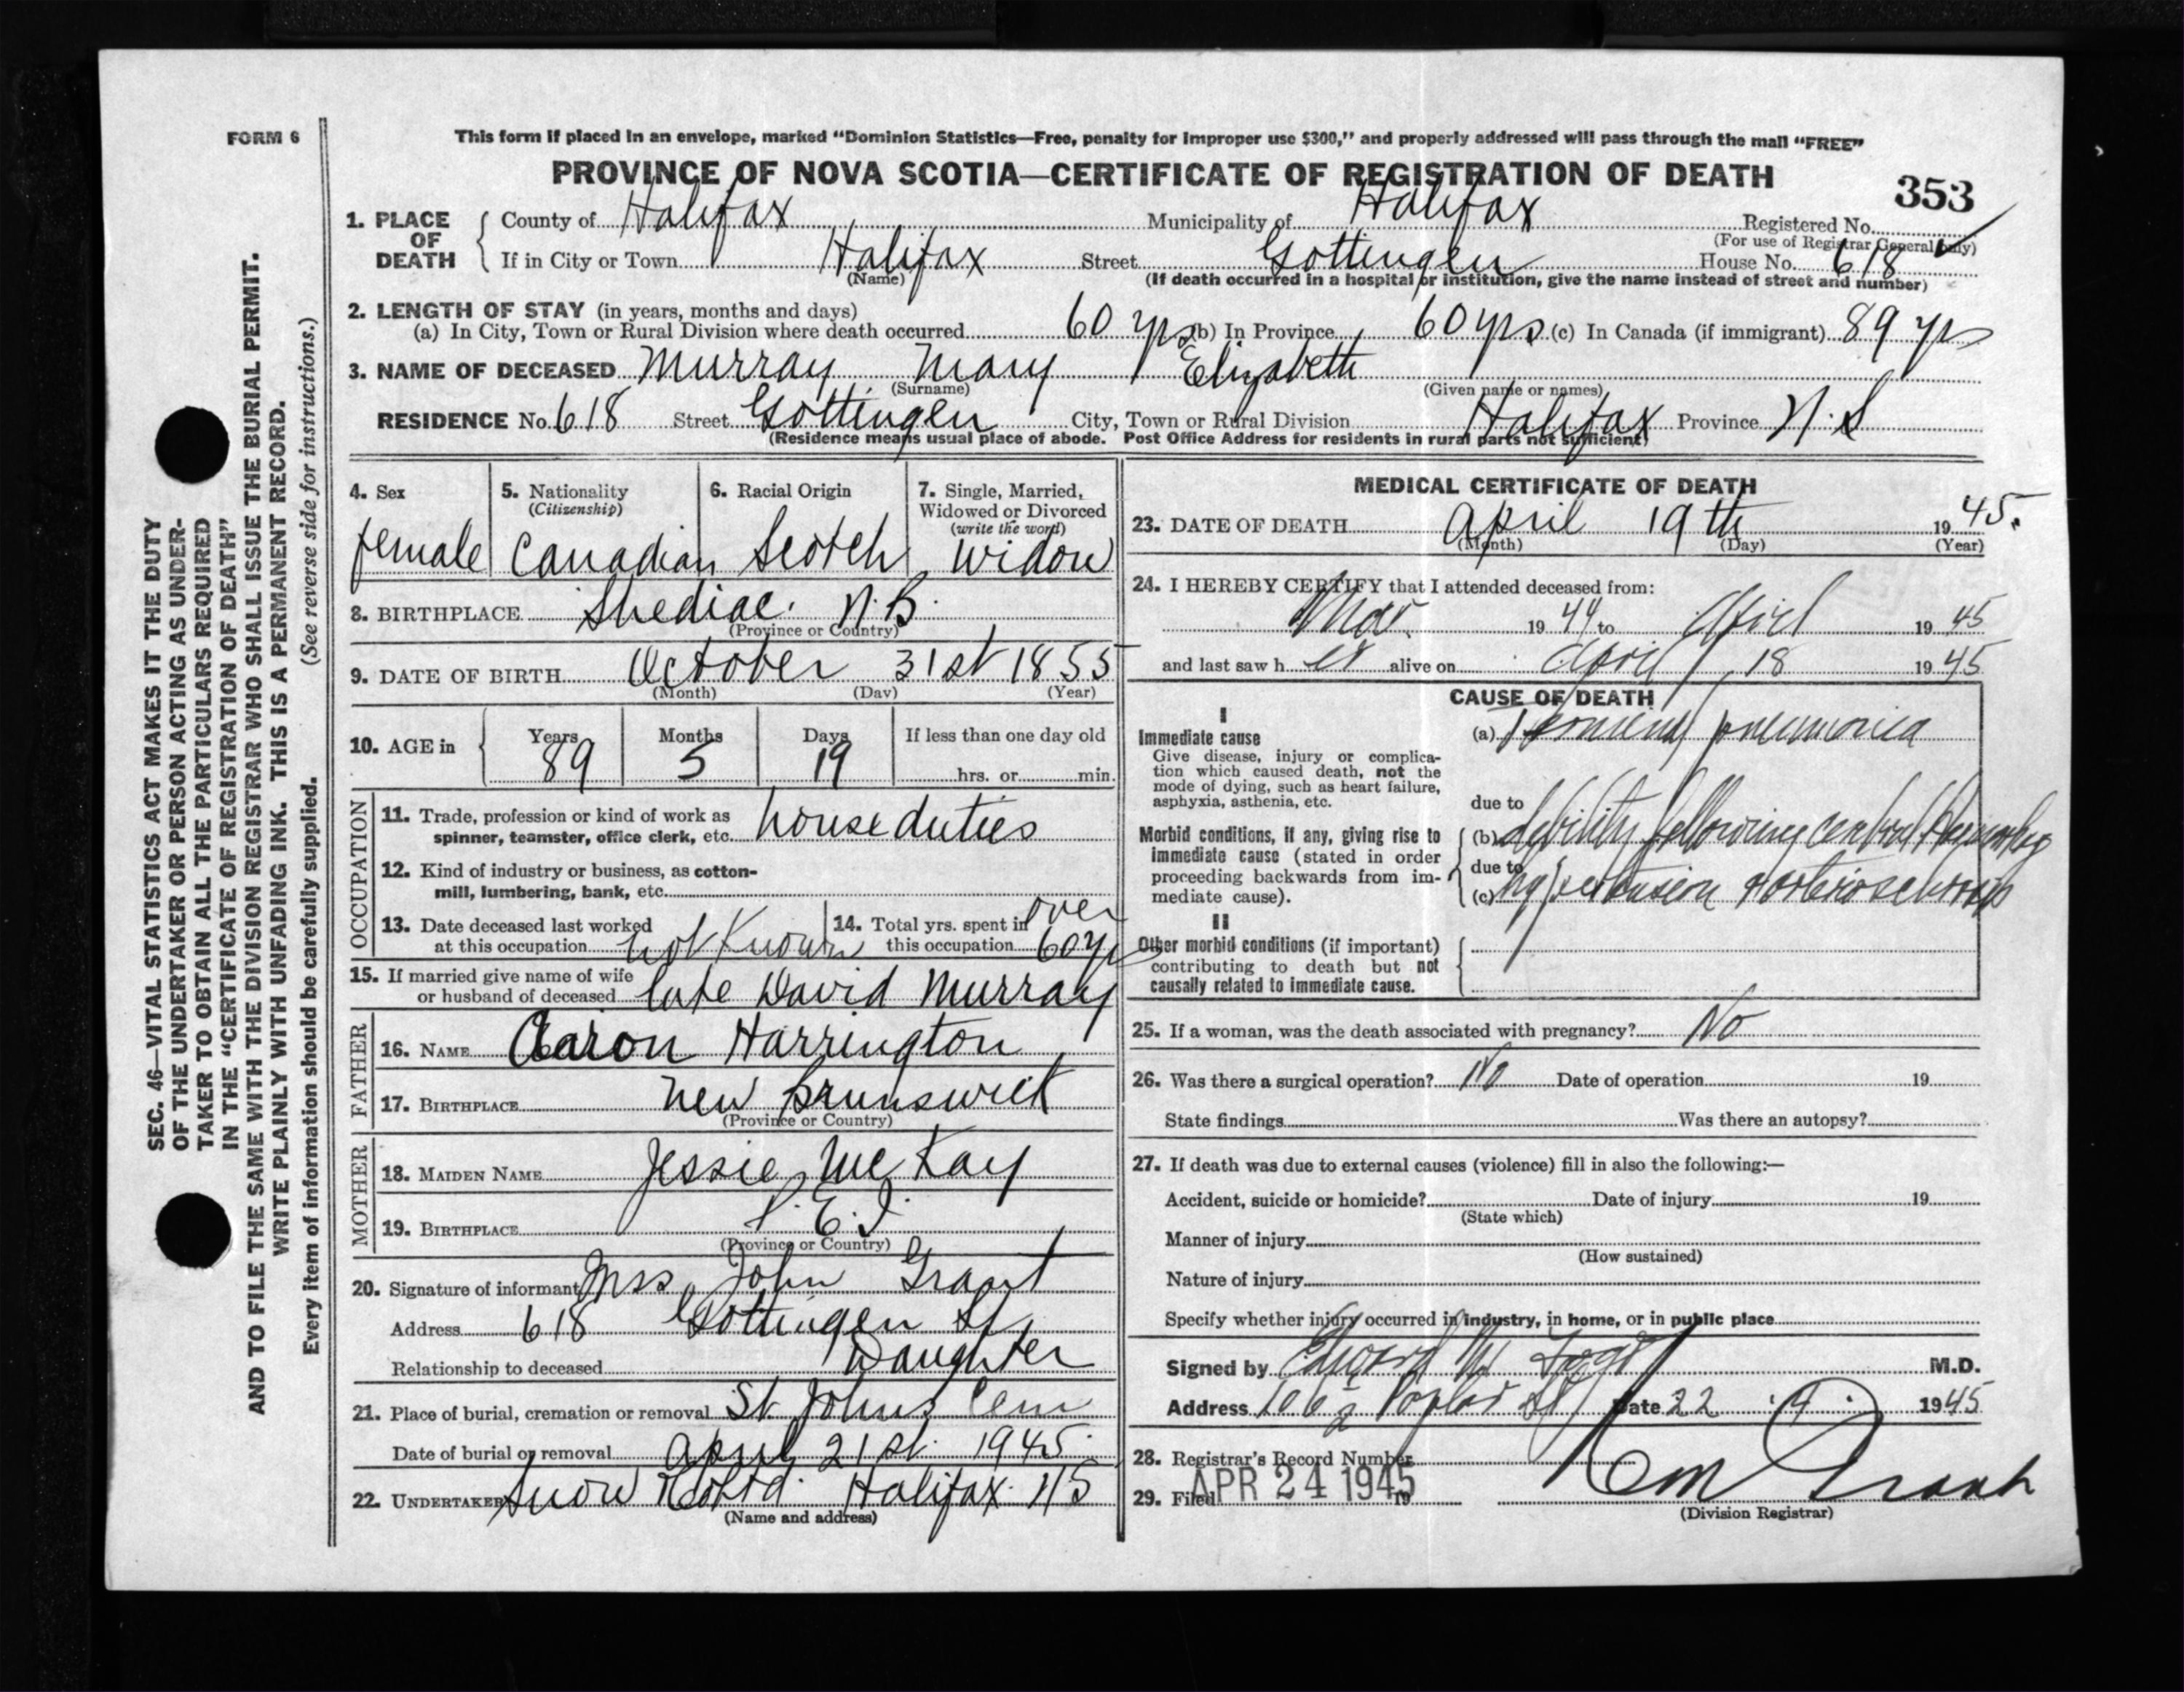 FORM 6
This form if placed in an envelope, marked "Dominion Statistics—Free, penalty for improper use $300," and properly addressed will pass through the mail "FREE"
PROVINCE OF NOVA SCOTIA—CERTIFICATE OF REGISTRATION OF DEATH
353
1. PLACE OF DEATH { County of Halifax Municipality of Halifax Registered No.
(For use of Registrar General only)
If in City or Town Halifax Street Gottingen House No. 618
(Name) (If death occurred in a hospital or institution, give the name instead of street and number)
2. LENGTH OF STAY (in years, months and days)
(a) In City, Town or Rural Division where death occurred 60 yrs (b) In Province 60 yrs (c) In Canada (if immigrant) 89 yrs
3. NAME OF DECEASED Murray Mary Elizabeth
(Surname) (Given name or names)
RESIDENCE No. 618 Street Gottingen City, Town or Rural Division Halifax Province N.S
(Residence means usual place of abode. Post Office Address for residents in rural parts not sufficient)
4. Sex
female
5. Nationality
(Citizenship)
Canadian
6. Racial Origin
Scotch
7. Single, Married,
Widowed or Divorced
(write the word)
Widow
8. BIRTHPLACE Shediac. N.B.
(Province or Country)
9. DATE OF BIRTH October 31st 1855
(Month) (Day) (Year)
10. AGE in { Years Months Days If less than one day old
89 5 19 hrs. or min.
OCCUPATION
11. Trade, profession or kind of work as
spinner, teamster, office clerk, etc. house duties
12. Kind of industry or business, as cotton-
mill, lumbering, bank, etc.
13. Date deceased last worked
at this occupation not Known
14. Total yrs. spent in
this occupation over 60 yrs
15. If married give name of wife
or husband of deceased late David Murray
FATHER
16. NAME Aaron Harrington
17. BIRTHPLACE New Brunswick
(Province or Country)
MOTHER
18. MAIDEN NAME Jessie McKay
19. BIRTHPLACE P.E.I.
(Province or Country)
20. Signature of informant Mrs John Grant
Address 618 Gottingen St
Relationship to deceased Daughter
21. Place of burial, cremation or removal St. Johns Cem
Date of burial or removal April 21st. 1945
22. UNDERTAKER Snow & Co Ltd. Halifax. NS
(Name and address)
MEDICAL CERTIFICATE OF DEATH
23. DATE OF DEATH April 19th 1945.
(Month) (Day) (Year)
24. I HEREBY CERTIFY that I attended deceased from:
Mar. 1944 to April 1945
and last saw h er alive on April 18 1945
CAUSE OF DEATH
I
Immediate cause
Give disease, injury or complica-
tion which caused death, not the
mode of dying, such as heart failure,
asphyxia, asthenia, etc.
(a) pneumonia
due to
Morbid conditions, if any, giving rise to
immediate cause (stated in order
proceeding backwards from im-
mediate cause).
(b) debility following cerebral Haemorrhage
due to
(c) hypertension & arteriosclerosis
II
Other morbid conditions (if important)
contributing to death but not
causally related to immediate cause.
25. If a woman, was the death associated with pregnancy? No
26. Was there a surgical operation? No Date of operation 19
State findings Was there an autopsy?
27. If death was due to external causes (violence) fill in also the following:—
Accident, suicide or homicide? Date of injury 19
(State which)
Manner of injury
(How sustained)
Nature of injury
Specify whether injury occurred in industry, in home, or in public place
Signed by Edward M. M.D.
Address 106 1/2 Poplar St Date 22 . 4 . 1945
28. Registrar's Record Number
29. Filed APR 24 1945 19
(Division Registrar)
SEC. 46—VITAL STATISTICS ACT MAKES IT THE DUTY
OF THE UNDERTAKER OR PERSON ACTING AS UNDER-
TAKER TO OBTAIN ALL THE PARTICULARS REQUIRED
IN THE "CERTIFICATE OF REGISTRATION OF DEATH"
AND TO FILE THE SAME WITH THE DIVISION REGISTRAR WHO SHALL ISSUE THE BURIAL PERMIT.
WRITE PLAINLY WITH UNFADING INK. THIS IS A PERMANENT RECORD.
Every item of information should be carefully supplied. (See reverse side for instructions.)